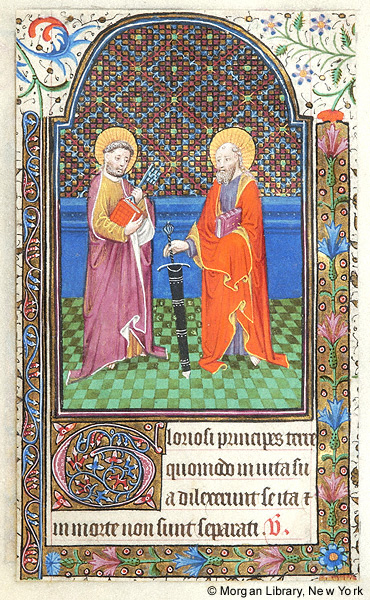 Gloriosi principes terre
quomodo in uita su
a dilexerunt se ita ⁊
in morte non sunt separati. V̷.
© Morgan Library, New York